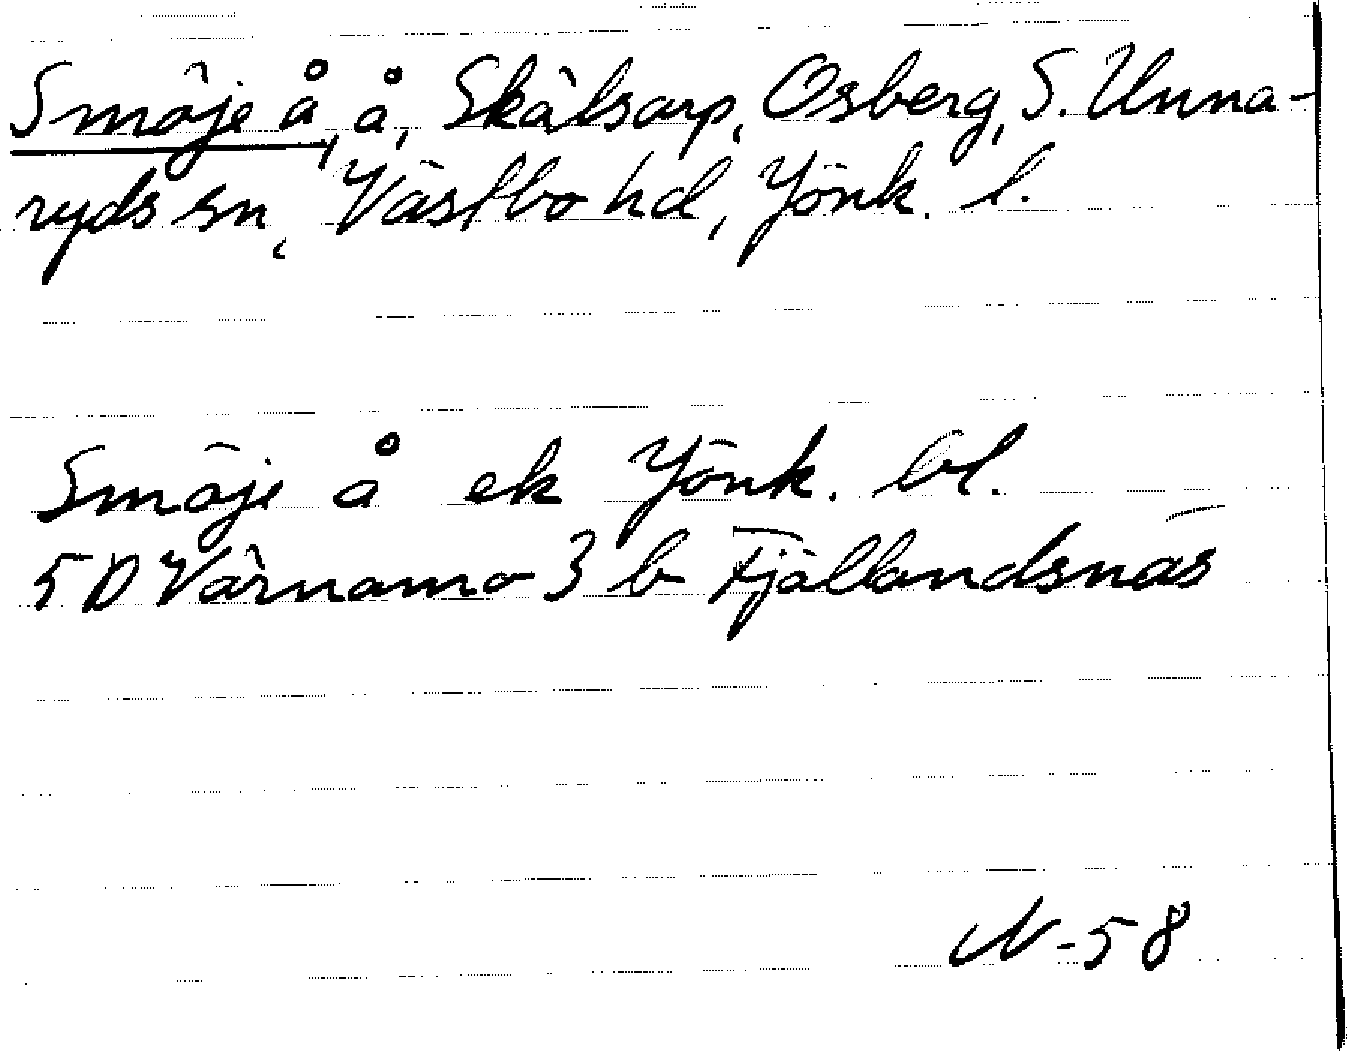 Smöje å, å, Skälsarp, Osberg, S. Unna-
ryds sn, Västbo hd, Jönk. l.
Smöje å ek Jönk. bl.
5D Värnamo 3 b Fjällandsnäs
N-58